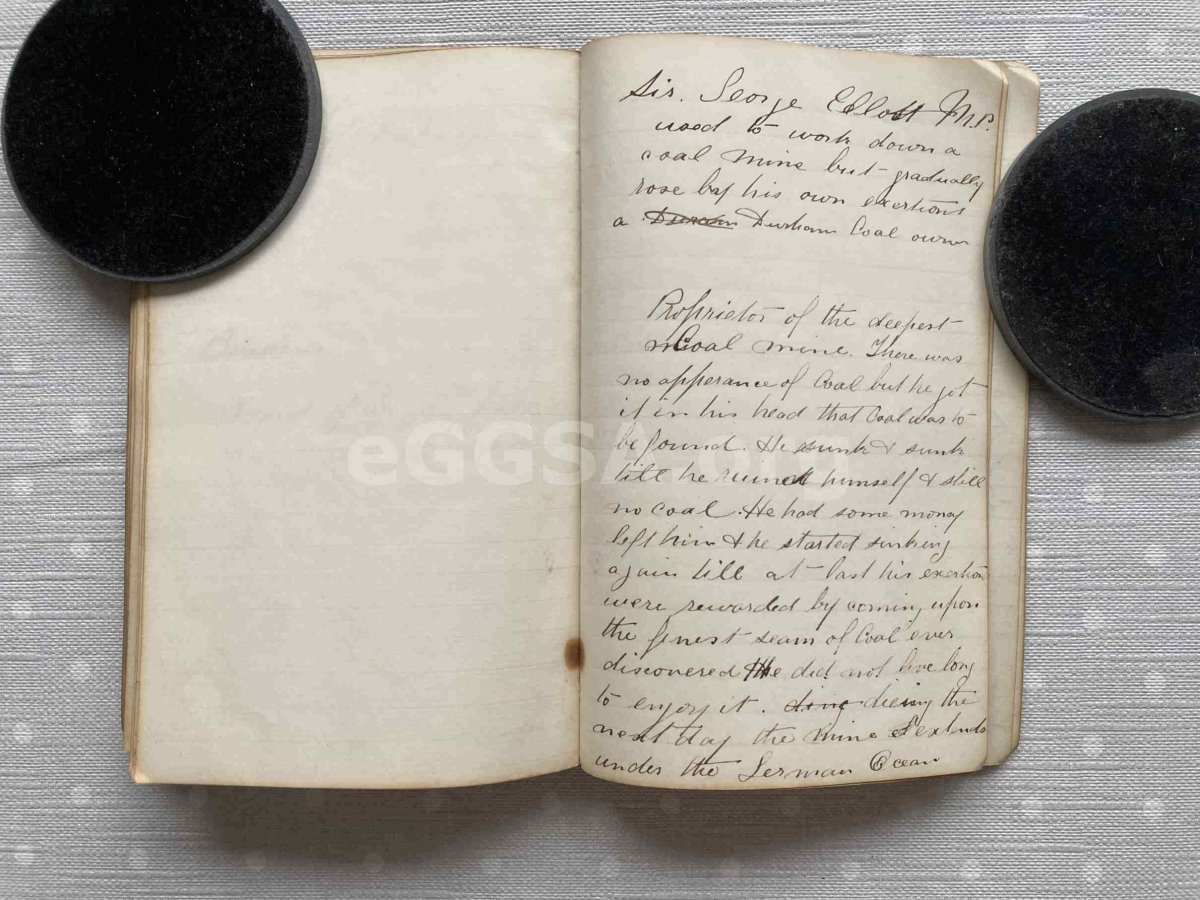 Sir. George Ellott M.P.
used to work down a
coal mine but gradually
rose by his own exertions
a Durham Coal owner
Proprietor of the deepest
Coal mine. There was
no apperance of Coal but he got
it in his head that Coal was to
be found. He sunk & sunk
till he ruined himself & still
no coal. He had some money
left him & he started sinking
again till at last his exertion
were rewarded by coming upon
the finest seam of Coal ever
discovered He did not live long
to enjoy it. dieing the
next day the mine extends
under the German Ocean
eGGSA.org